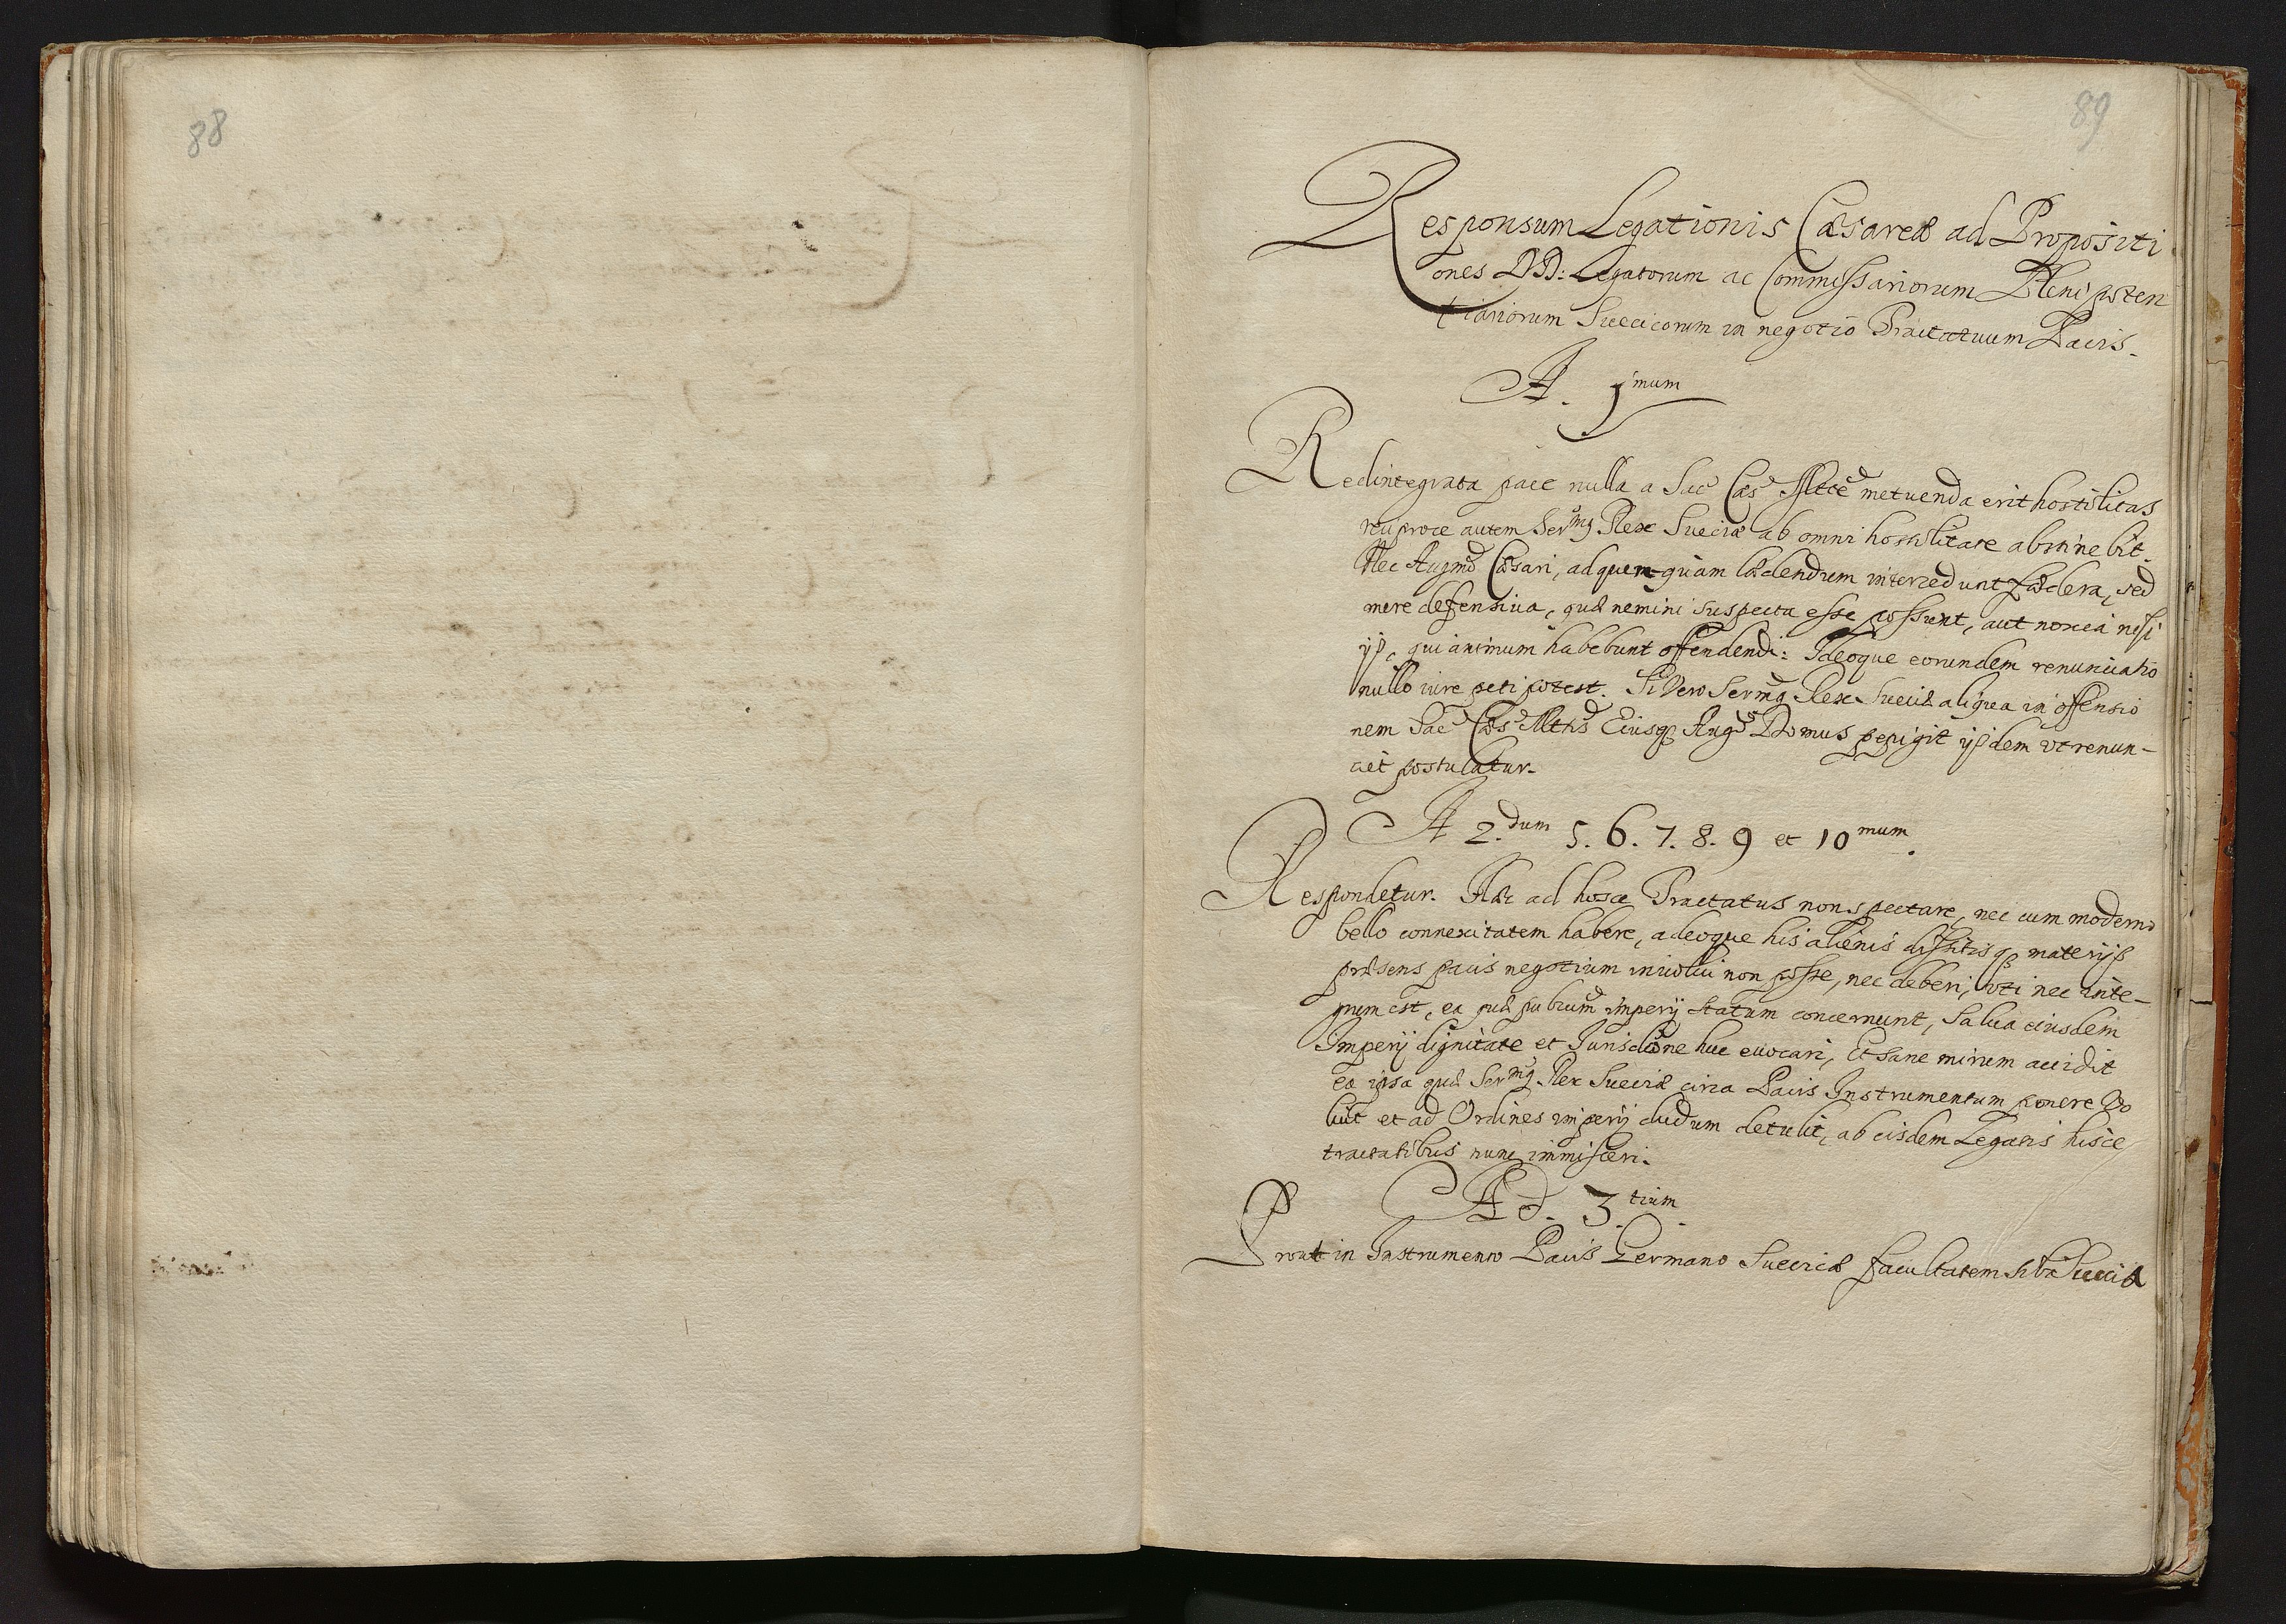 88
89
Responsum Legationis Cæsareæ ad Propositi
ones DD: Legatorum ac Commissariorum Plenipoten
tiariorum Suecicorum in negotio Tractatuum Pacis.
A. 1mum
Redintegrata pace nulla a Sac Cæs Mtte metuenda erit hostilitas
reciproce autem Sermq Rex Sueciæ ab omni hostilitate abstinebit.
Nec Augmo Cæsari, ad quemquam lædendum intercedunt fædera, sed
mere defensiua, quæ nemini suspecta esse possunt, aut noxia nisi
ijs, qui animum habebunt offendendi: Ideoque eorundem renunciatio
nullo iure peti potest. Si vero Sermq Rex Sueciæ aliqua in offensio
nem Sac Cæs Mttis Eiusq Aug Domus pepigit ijsdem vt renun-
ciet postulatur.
A 2.dum 5. 6. 7. 8. 9 et 10mum.
Respondetur. Hæc ad hosce Tractatus non spectare, nec cum moderno
bello connexitatem habere, adeoque his alienis dissitisq materijs
præsens pacis negotium inuolui non posse, nec deberi, vti nec inte-
grum est, ea quæ publicum imperij statum concernunt, salua eiusdem
Imperij dignitate et Jurisdicone huc euocari, Et sane mirum accidit
ea ipsa quæ Sermq Rex Sueciæ circa Pacis Instrumentum ponere vo
luit et ad Ordines imperij dudum detulit, ab eisdem Legatis hisce
tractatibus nunc immisceri.
Ad. 3.tium.
Prout in Instrumento Pacis Germano Suecicæ facultatem sibi